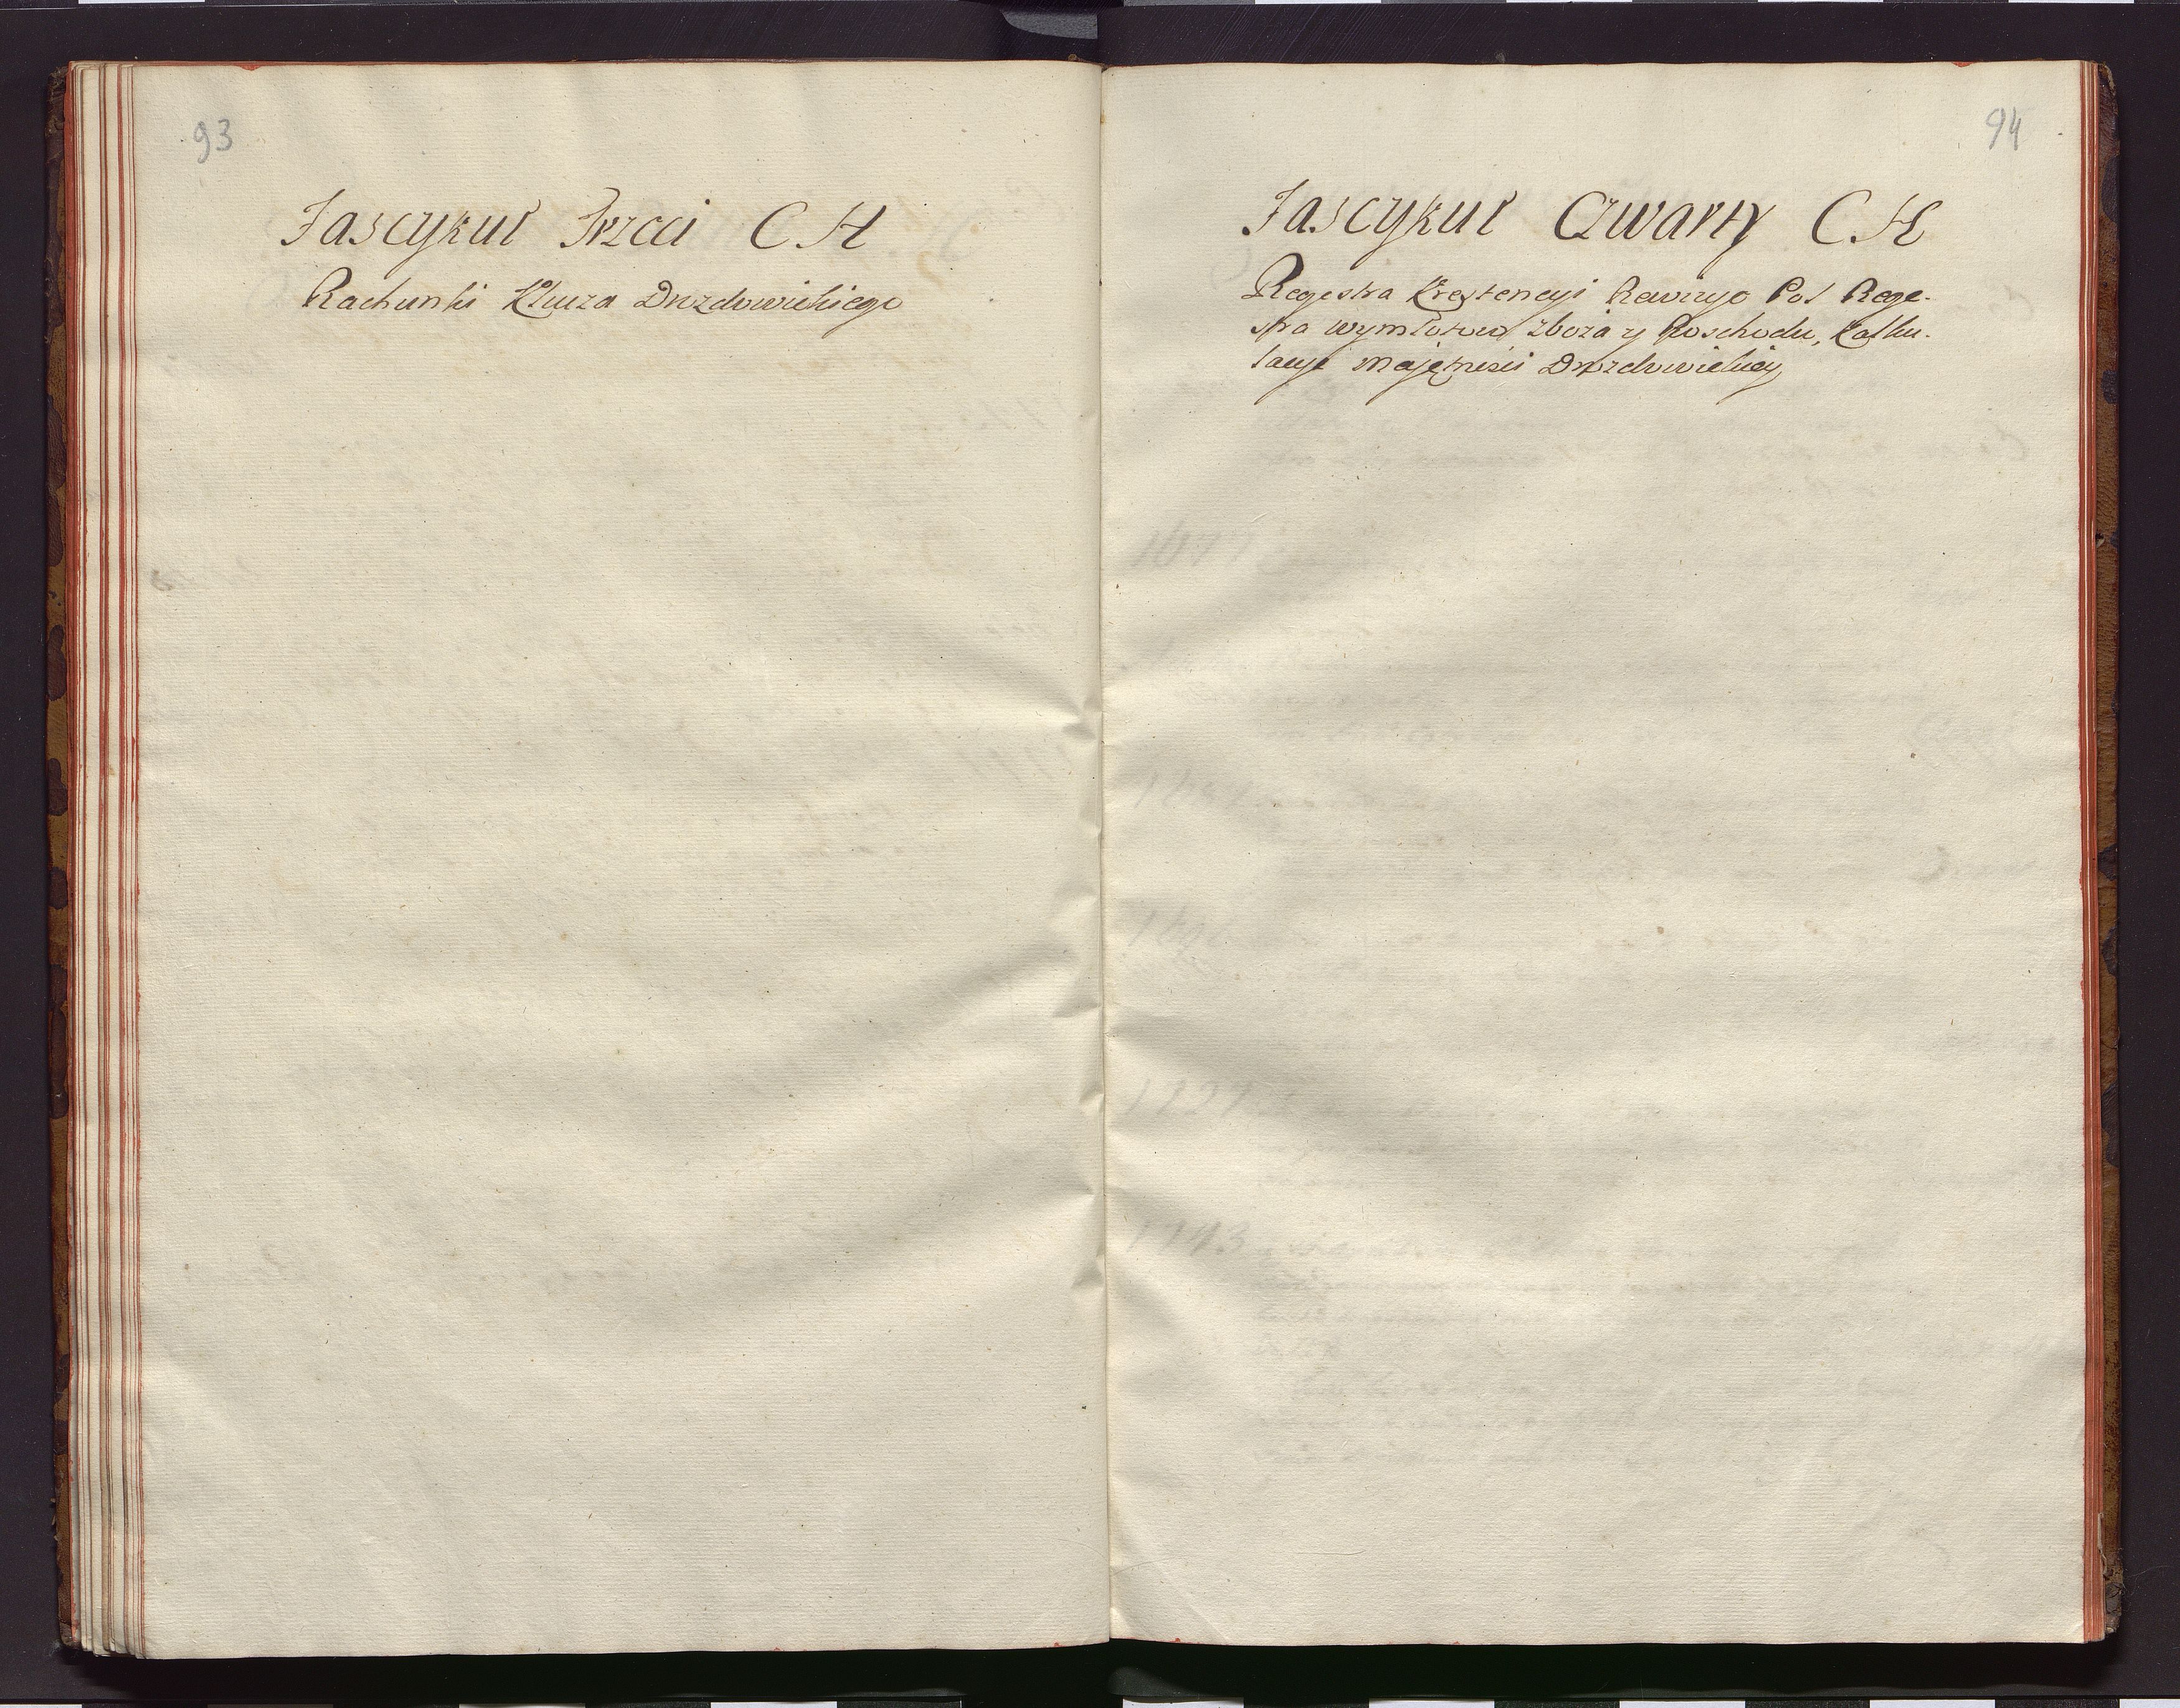 93
Fascykuł Trzeci C. H
Rachunki Klucza Drozdowickiego
94
Fascykuł Czwarty C. H
Regestra Krestencyi Rewizye Pol Rege-
stra wymłotow zboza y Roschodu, Kalku-
lacye Majętnosci Drozdowickiey